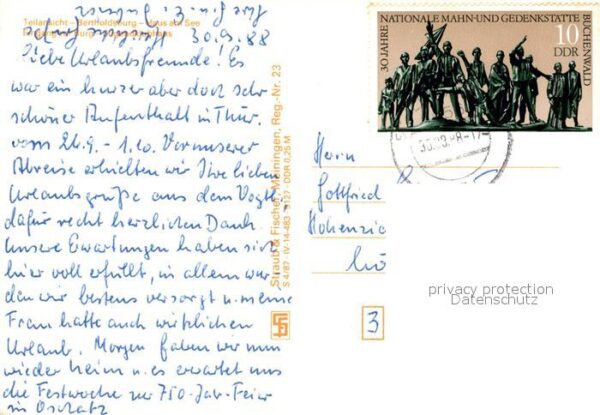 Teilansicht - Bertholdsburg - Haus am See
30.9.88
Liebe Urlaubsfreunde! Es
war ein kurzer aber doch sehr
schöner Aufenthalt in Thür.
vom 26.9. - 1.10. Vor unserer
Abreise erhielten wir Ihre lieben
Urlaubsgrüße aus dem Vogtl.
dafür recht herzlichen Dank.
Unsere Erwartungen haben sich
hier voll erfüllt, in allem wur-
den wir bestens versorgt u. meine
Frau hatte auch wirklichen
Urlaub. Morgen fahren wir nun
wieder heim u. es erwartet uns
die Festwoche zur 750-Jahr-Feier
in Oschatz
Straub & Fischer, Meiningen, Reg.-Nr. 23
S 4/87 IV-14-483 DDR 0,25 M
30 JAHRE
NATIONALE MAHN-UND GEDENKSTÄTTE
BUCHENWALD
10
DDR
Herrn
Gottfried
Hohenzie
3
privacy protection
Datenschutz